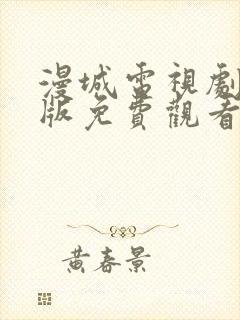 漫城電視劇
版免費觀看
黃春景